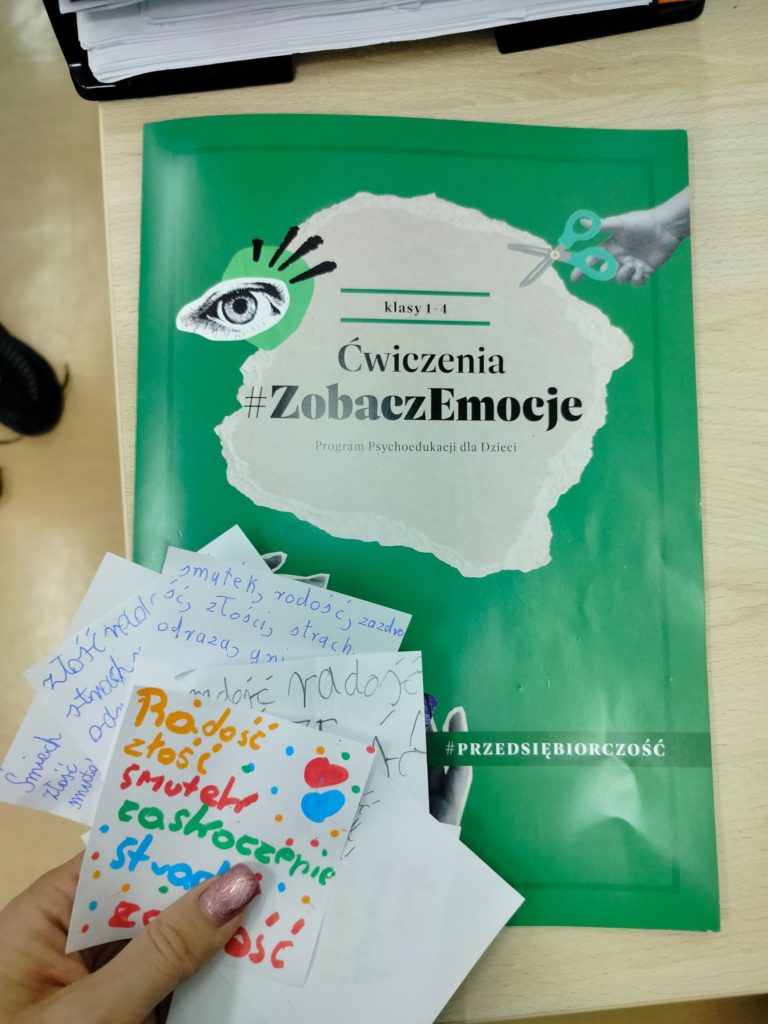 klasy 1-4
Ćwiczenia
#ZobaczEmocje
Program Psychoedukacji dla Dzieci
#PRZEDSIĘBIORCZOŚĆ
smutek, rodość, zazdro
ść, złości, strach
odraza, gni
złość rado
strach
Śmiech
złość
smute
radość
Radość
złość
smutek
zaskoczenie